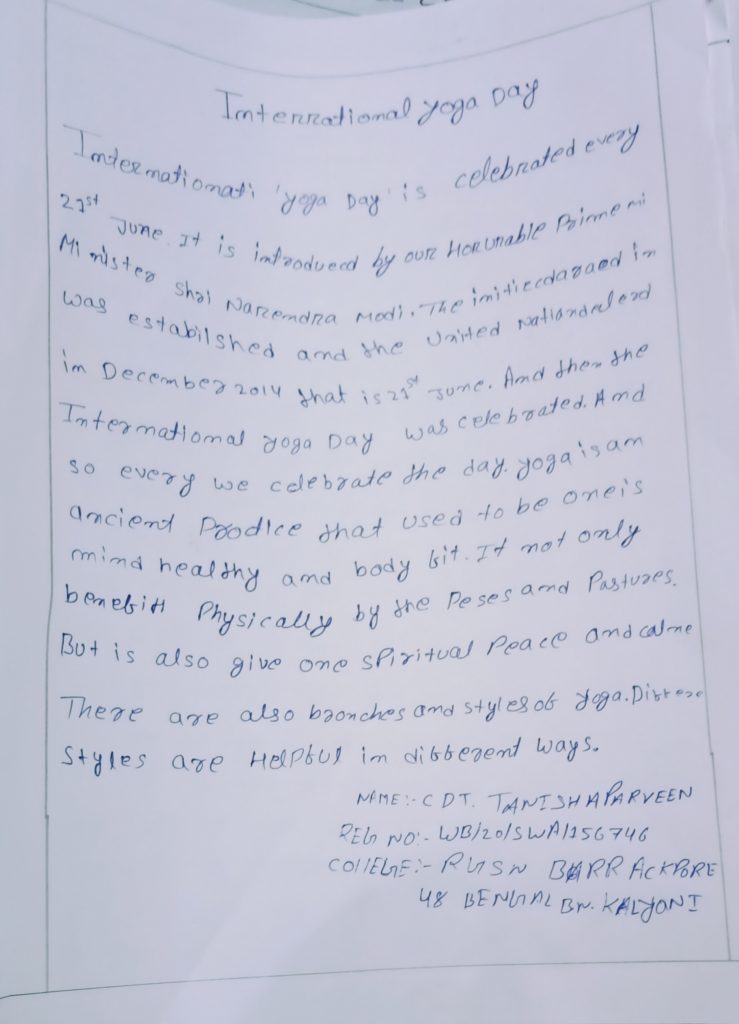 International yoga Day
Internationati 'yoga Day' is celebrated every
21st June. It is introdueed by our Honunable Prime mi
Minister Shri Narendra Modi. The initiecdaraed in
was estabilshed and the United Nationd
in December 2014 that is 21st June. And then the
International yoga Day was celebrated. And
so every we celebrate the day. yoga is an
ancient Proodice that used to be one's
mind healthy and body fit. It not only
benefitt Physically by the Peses and Pastures.
But is also give one spiritual Peace and calme
There are also bronches and styles of yoga.
Styles are Helpful in different ways.
NAME:- CDT. TANISHA PARVEEN
REG NO:- WB/20/SWA/156746
COllEGE:- RGSN BARRACKPORE
48 BENGAL BN. KALYONI